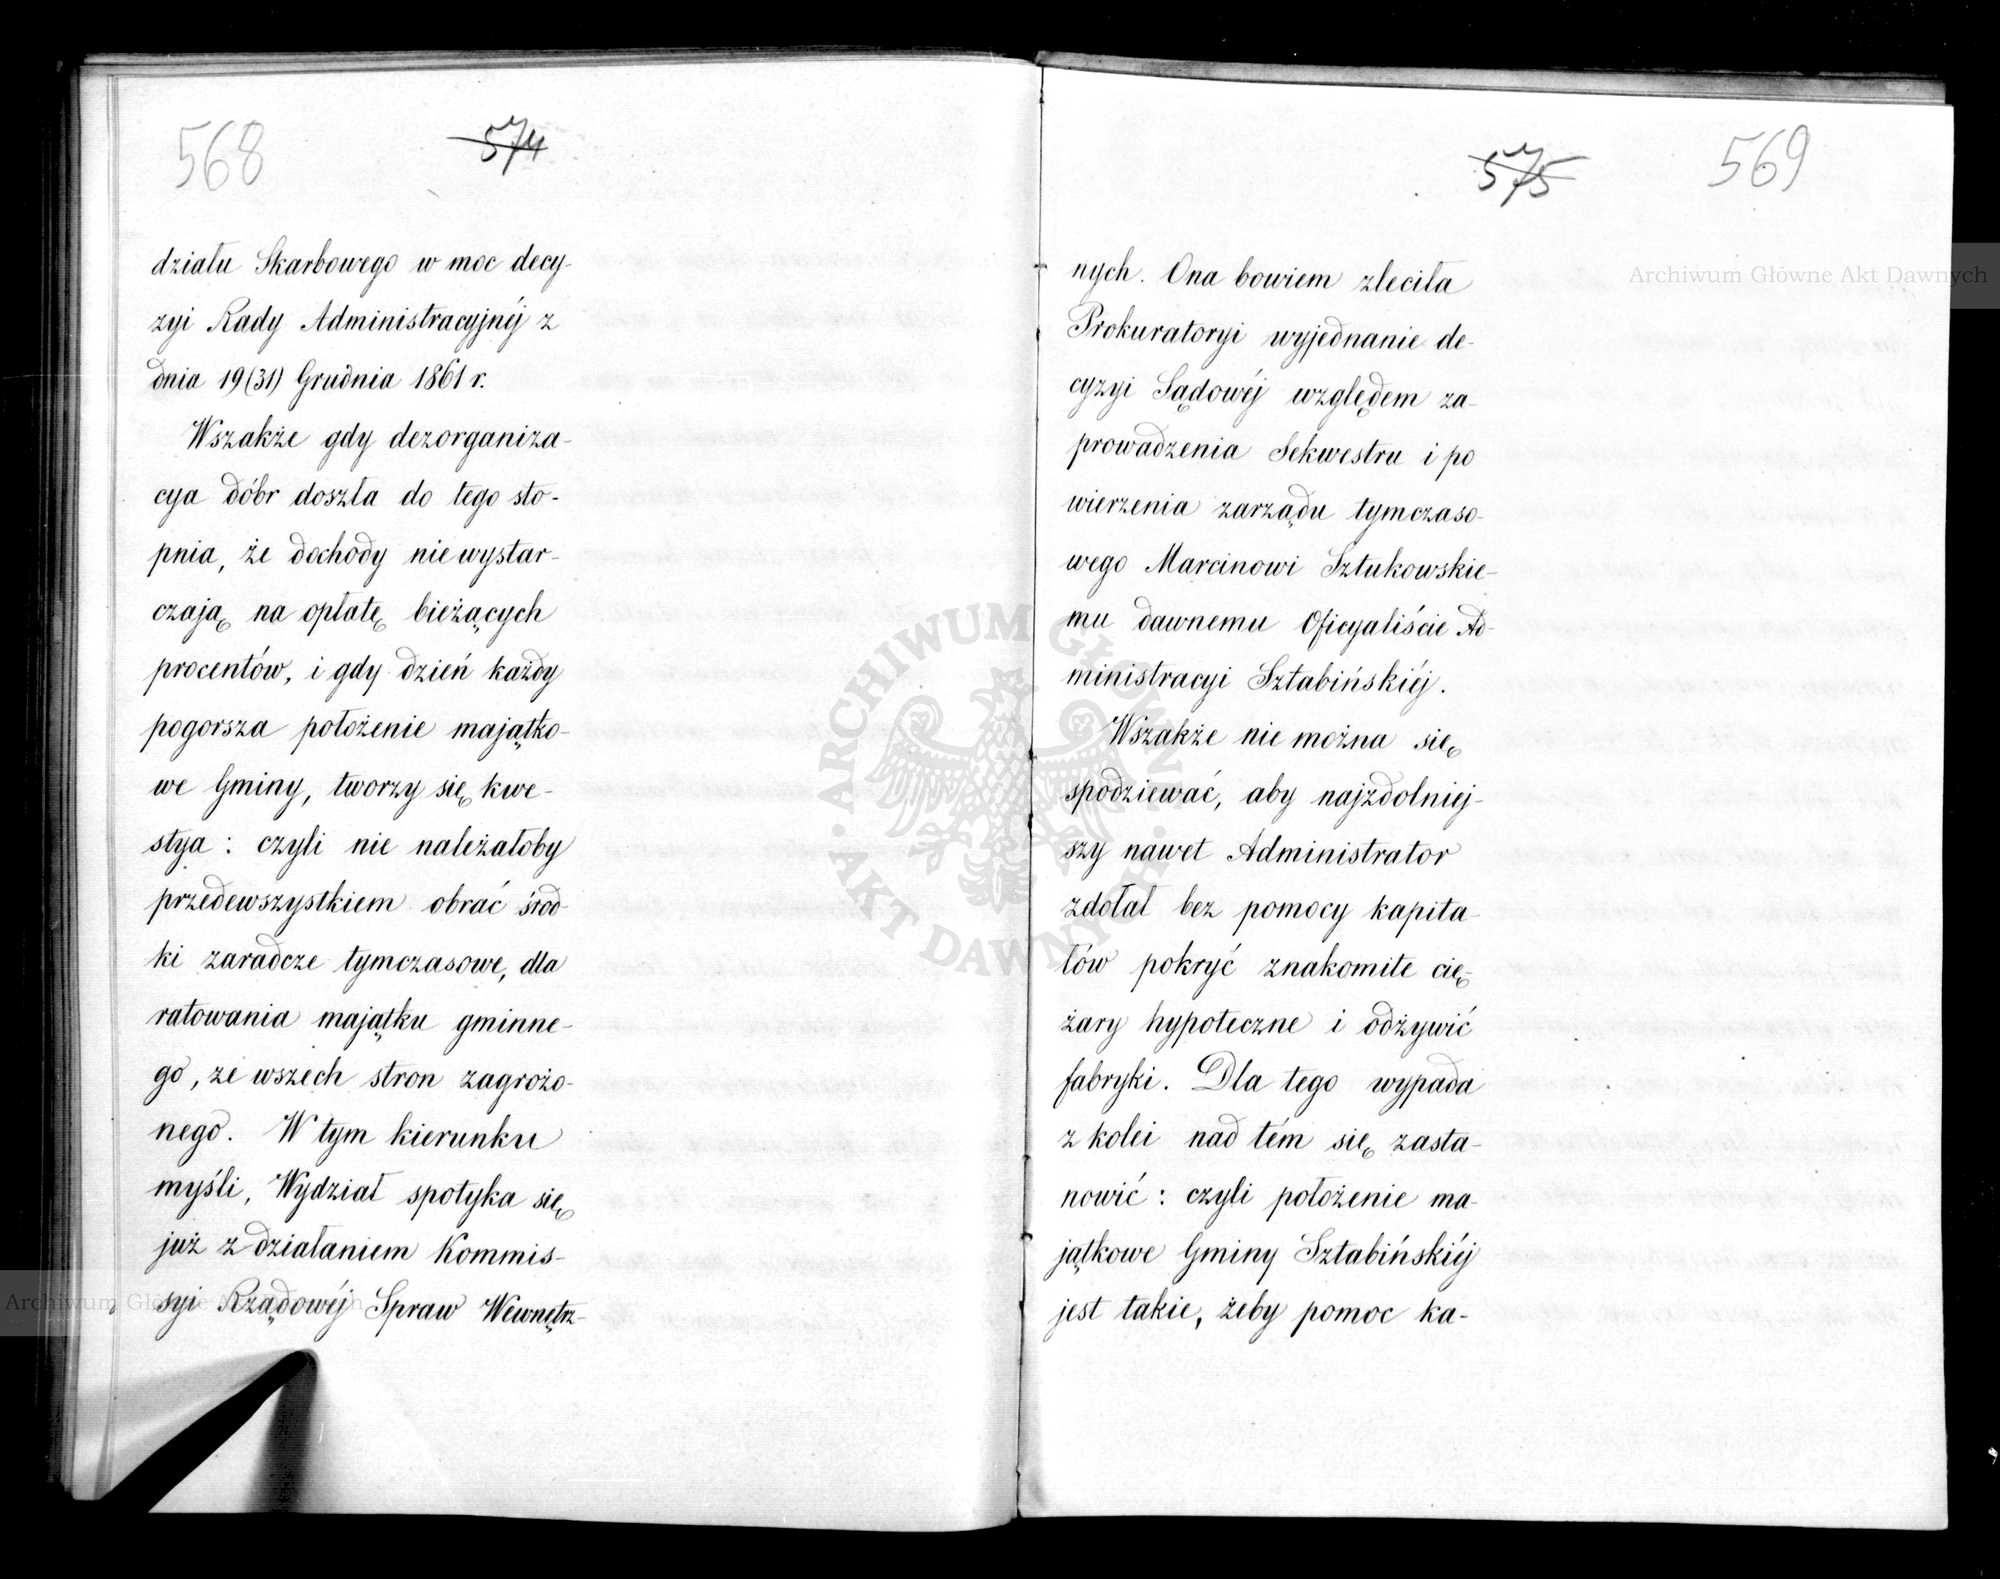 568
574
działu Skarbowego w moc decy-
zyi Rady Administracyjnéj z
dnia 19 (31) Grudnia 1861 r.
Wszakże gdy dezorganiza-
cya dóbr doszła do tego sto-
pnia, że dochody nie wystar-
czają na opłatę bieżących
procentów, i gdy dzień każdy
pogorsza położenie majątko-
we Gminy, tworzy się kwe-
stya: czyli nie należałoby
przedewszystkiem obrać środ-
ki zaradcze tymczasowe, dla
ratowania majątku gminne-
go, ze wszech stron zagrożo-
nego. W tym kierunku
myśli, Wydział spotyka się
już z działaniem Kommis-
syi Rządowéj Spraw Wewnętrz-
575
569
nych. Ona bowiem zleciła
Prokuratoryi wyjednanie de-
cyzyi Sądowéj względem za-
prowadzenia Sekwestru i po
wierzenia zarządu tymczaso-
wego Marcinowi Sztukowskie-
mu dawnemu Oficyaliście Ad-
ministracyi Sztabińskiéj.
Wszakże nie można się
spodziewać, aby najzdolniej-
szy nawet Administrator
zdołał bez pomocy kapita-
łów pokryć znakomite cię-
żary hypoteczne i odżywić
fabryki. Dla tego wypada
z kolei nad tém się zasta-
nowić: czyli położenie ma-
jątkowe Gminy Sztabińskiéj
jest takie, żeby pomoc ka-
Archiwum Główne Akt Dawnych
ARCHIWUM GŁÓWNE
AKT DAWNYCH
Archiwum Główne Akt Dawnych